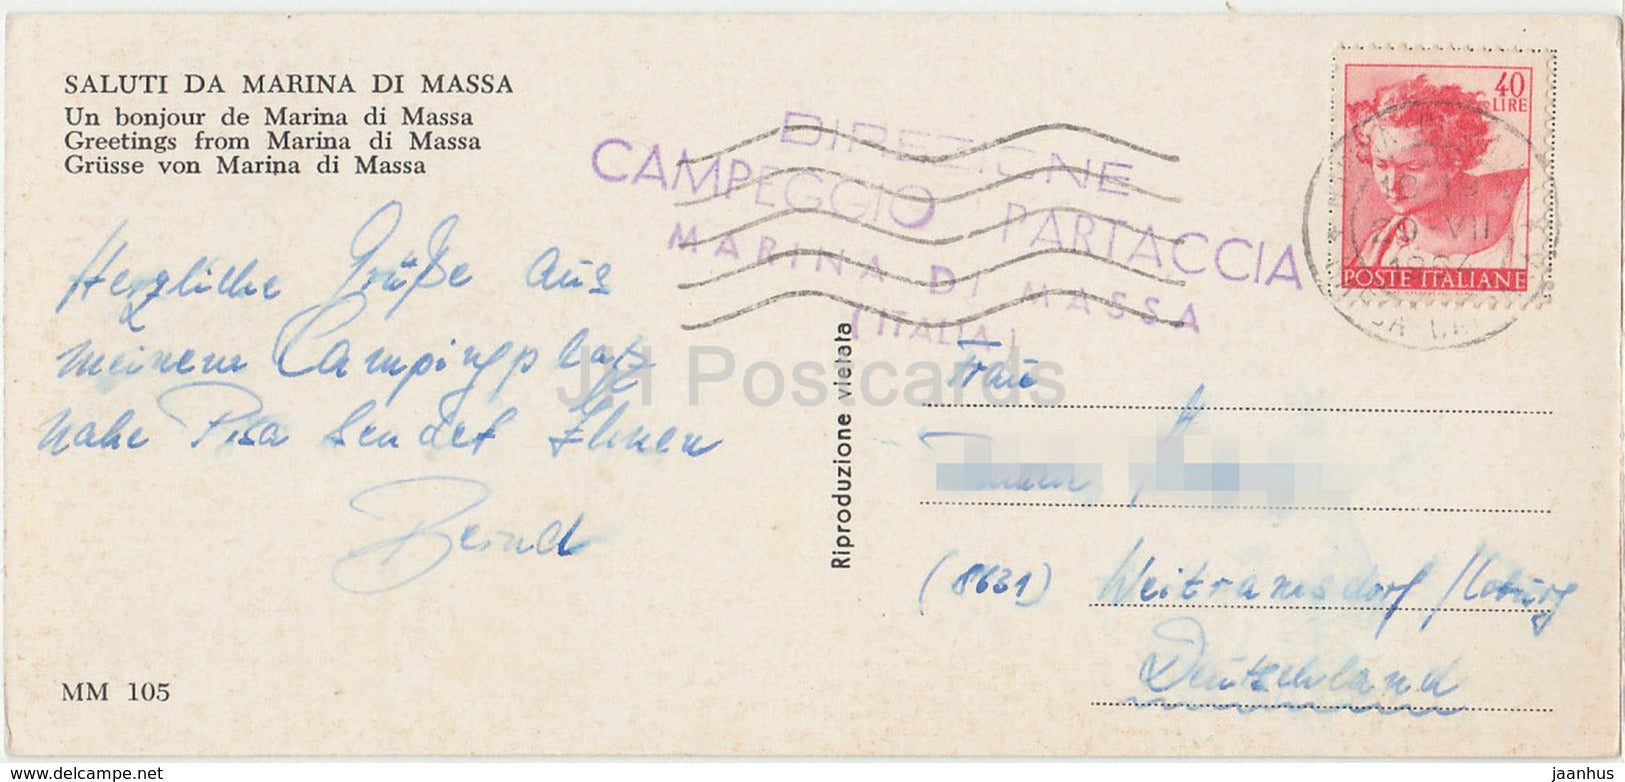 SALUTI DA MARINA DI MASSA
Un bonjour de Marina di Massa
Greetings from Marina di Massa
Grüsse von Marina di Massa
Herzliche Grüße aus
meinem Campingplatz
nahe Pisa sendet Ihnen
Bernd
MM 105
Riproduzione vietata
DIREZIONE
CAMPEGGIO PARTACCIA
MARINA DI MASSA
(ITALIA)
40
LIRE
POSTE ITALIANE
20 VII
Frau
(8631) Weitramsdorf / Coburg
Deutschland
JH Postcards
delcampe.net
jaanhus